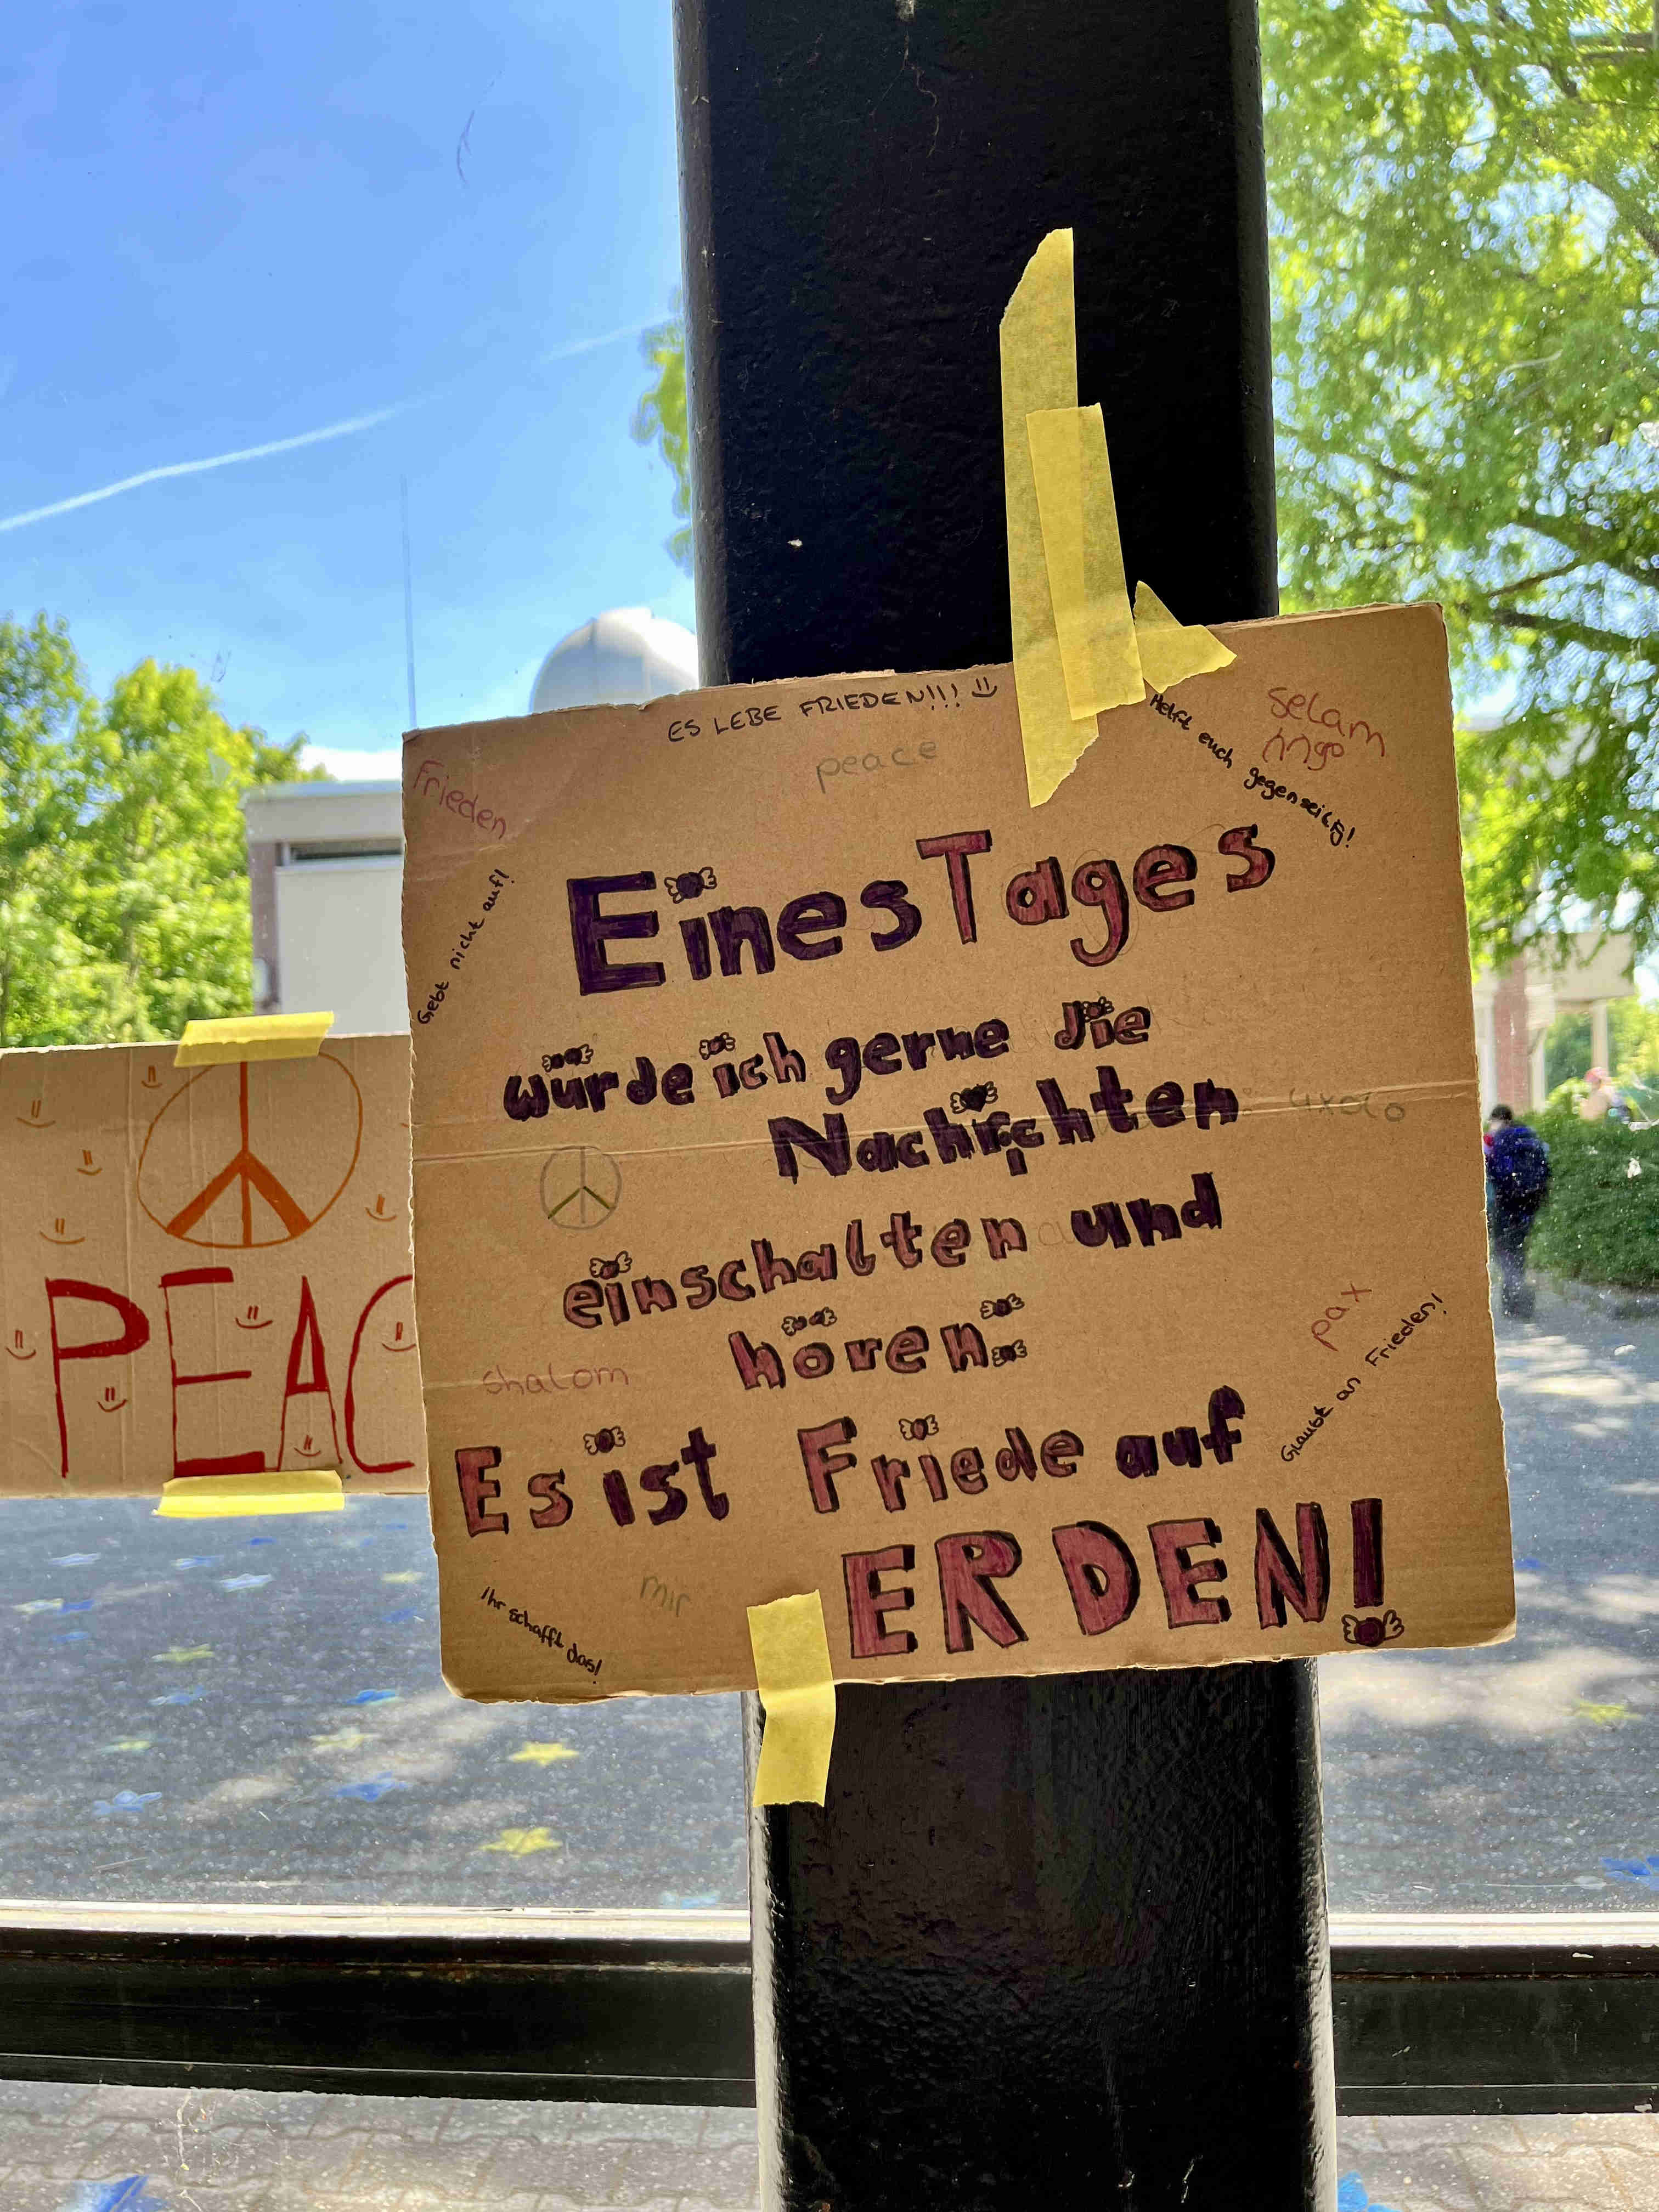 ES LEBE FRIEDEN!!!
peace
Frieden
selam
Helft euch gegenseitig!
Gebt nicht auf!
Eines Tages
würde ich gerne die
Nachrichten
einschalten und
hören:
Es ist Friede auf
ERDEN!
shalom
pax
Glaubt an Frieden!
mir
Ihr schafft das!
PEAC